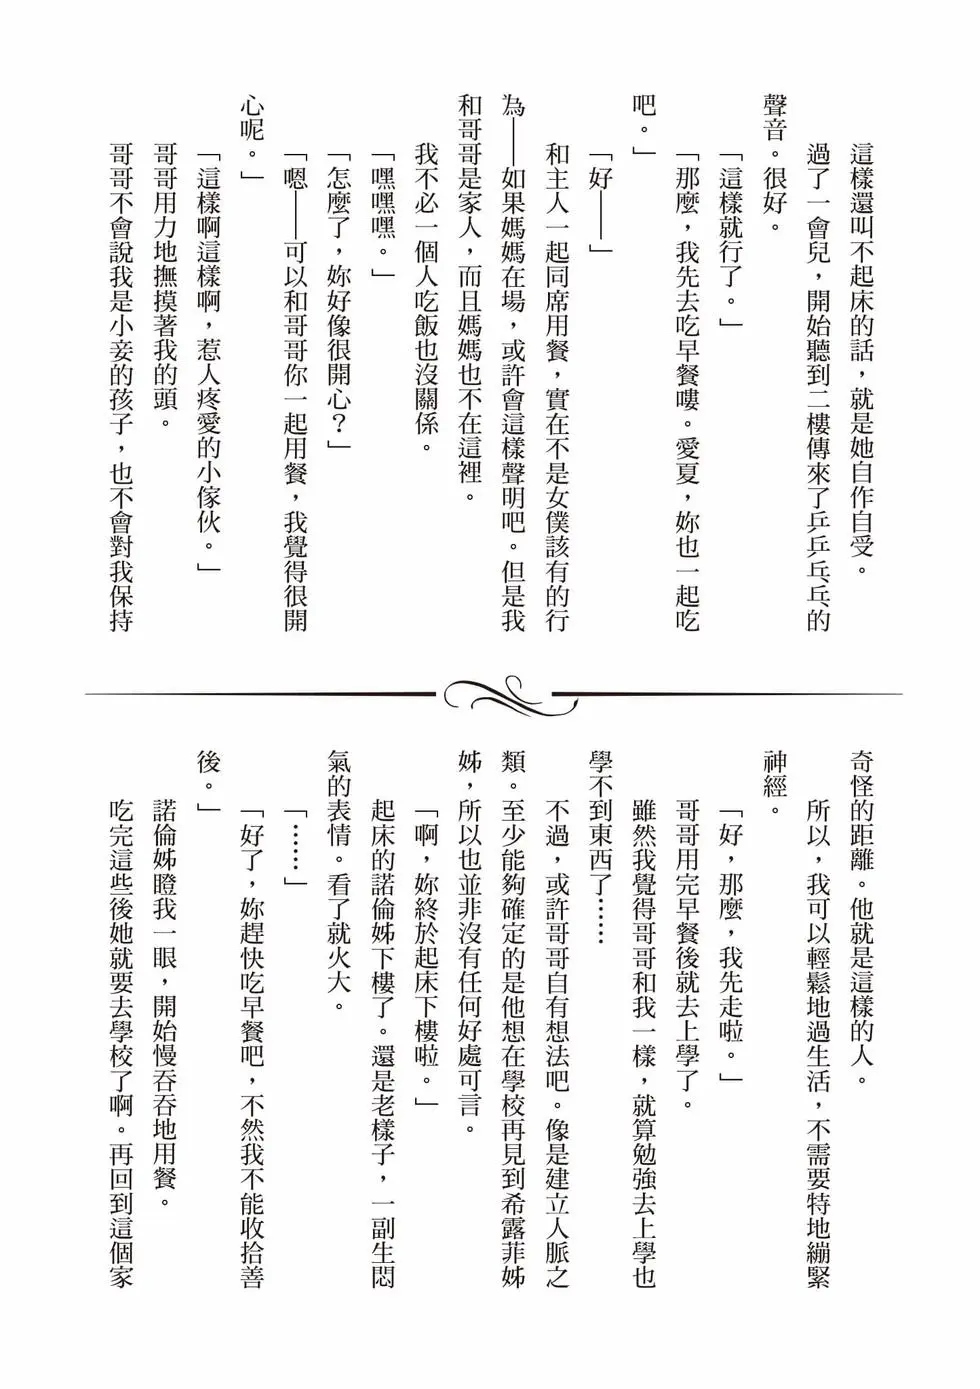 這樣還叫不起床的話，就是她自作自受。
過了一會兒，開始聽到二樓傳來了乒乒乓乓的
聲音。很好。
「這樣就行了。」
「那麼，我先去吃早餐嘍。愛夏，妳也一起吃
吧。」
「好——」
和主人一起同席用餐，實在不是女僕該有的行
為——如果媽媽在場，或許會這樣聲明吧。但是我
和哥哥是家人，而且媽媽也不在這裡。
我不必一個人吃飯也沒關係。
「嘿嘿嘿。」
「怎麼了，妳好像很開心？」
「嗯——可以和哥哥你一起用餐，我覺得很開
心呢。」
「這樣啊這樣啊，惹人疼愛的小傢伙。」
哥哥用力地撫摸著我的頭。
哥哥不會說我是小妾的孩子，也不會對我保持
奇怪的距離。他就是這樣的人。
所以，我可以輕鬆地過生活，不需要特地繃緊
神經。
「好，那麼，我先走啦。」
哥哥用完早餐後就去上學了。
雖然我覺得哥哥和我一樣，就算勉強去上學也
學不到東西了……
不過，或許哥哥自有想法吧。像是建立人脈之
類。至少能夠確定的是他想在學校再見到希露菲姊
姊，所以也並非沒有任何好處可言。
「啊，妳終於起床下樓啦。」
起床的諾倫姊下樓了。還是老樣子，一副生悶
氣的表情。看了就火大。
「……」
「好了，妳趕快吃早餐吧，不然我不能收拾善
後。」
諾倫姊瞪我一眼，開始慢吞吞地用餐。
吃完這些後她就要去學校了啊。再回到這個家